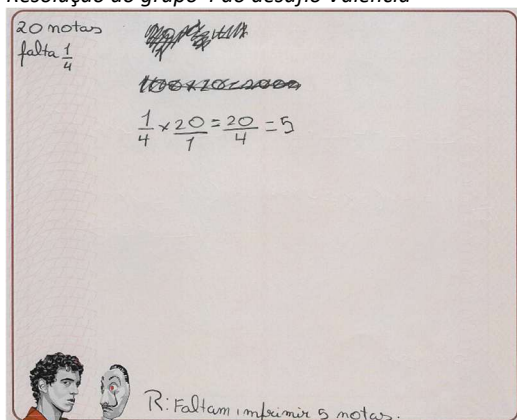 Resolução do grupo 4 do desafio Valência
20 notas
falta 1/4
1/4 × 20/1 = 20/4 = 5
R: Faltam imprimir 5 notas.